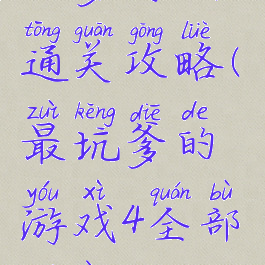 tōng guān gōng lüè
通关攻略(
zuì kēng diē de
最坑爹的
yóu xì quán bù
游戏4全部